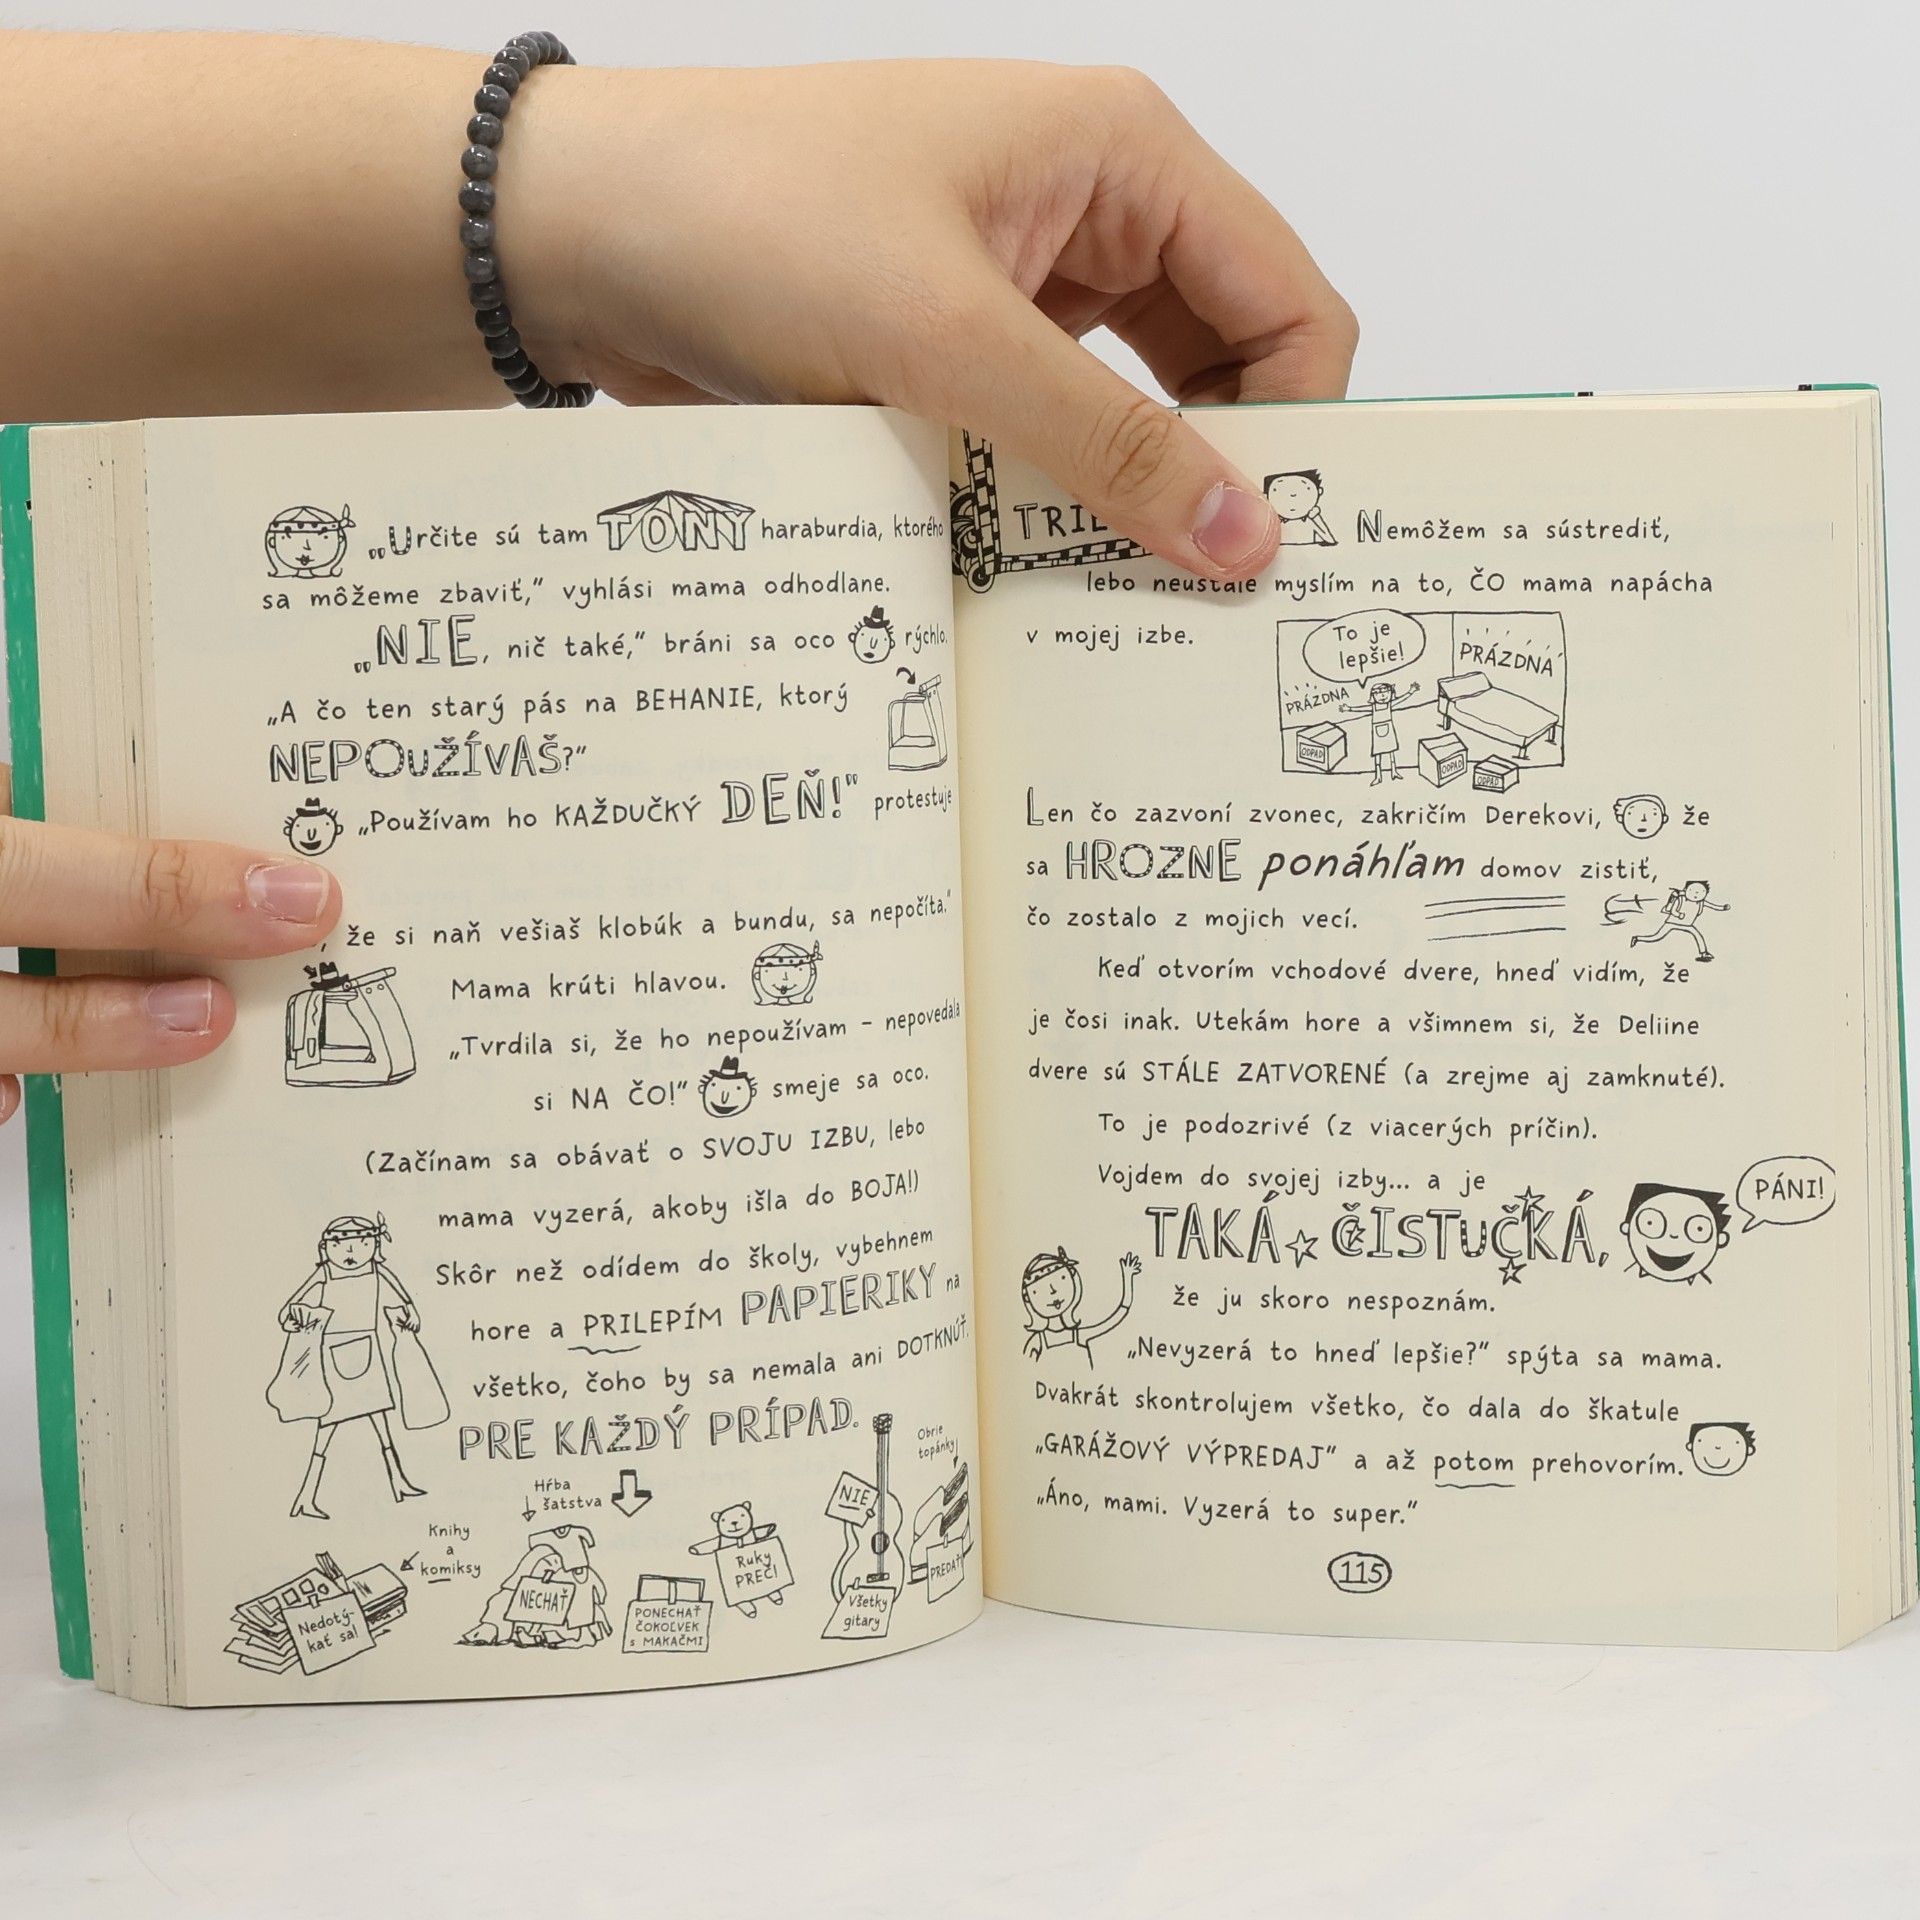 „Určite sú tam TONY haraburdia, ktorého
sa môžeme zbaviť,“ vyhlási mama odhodlane.
„NIE, nič také,“ bráni sa oco rýchlo.
„A čo ten starý pás na BEHANIE, ktorý
NEPOUŽÍVAŠ?“
„Používam ho KAŽDUČKÝ DEŇ!“ protestuje
že si naň vešiaš klobúk a bundu, sa nepočíta.“
Mama krúti hlavou.
„Tvrdila si, že ho nepoužívam – nepovedala
si NA ČO!“ smeje sa oco.
(Začínam sa obávať o SVOJU IZBU, lebo
mama vyzerá, akoby išla do BOJA!)
Skôr než odídem do školy, vybehnem
hore a PRILEPÍM PAPIERIKY na
všetko, čoho by sa nemala ani DOTKNÚŤ.
PRE KAŽDÝ PRÍPAD.
Knihy
a
komiksy
Nedotý-
kať sa!
Hŕba
šatstva
NECHAŤ
PONECHAŤ
ČOKOĽVEK
s MAKAČMI
Ruky
PREČ!
NIE
Všetky
gitary
Obrie
topánky
PREDAŤ
Nemôžem sa sústrediť,
lebo neustále myslím na to, ČO mama napácha
v mojej izbe.
To je
lepšie!
PRÁZDNA
PRÁZDNA
ODPAD
ODPAD
ODPAD
Len čo zazvoní zvonec, zakričím Derekovi, že
sa HROZNE ponáhľam domov zistiť,
čo zostalo z mojich vecí.
Keď otvorím vchodové dvere, hneď vidím, že
je čosi inak. Utekám hore a všimnem si, že Deliine
dvere sú STÁLE ZATVORENÉ (a zrejme aj zamknuté).
To je podozrivé (z viacerých príčin).
Vojdem do svojej izby... a je
TAKÁ ČISTUČKÁ,
PÁNI!
že ju skoro nespoznám.
„Nevyzerá to hneď lepšie?“ spýta sa mama.
Dvakrát skontrolujem všetko, čo dala do škatule
„GARÁŽOVÝ VÝPREDAJ“ a až potom prehovorím.
„Áno, mami. Vyzerá to super.“
115